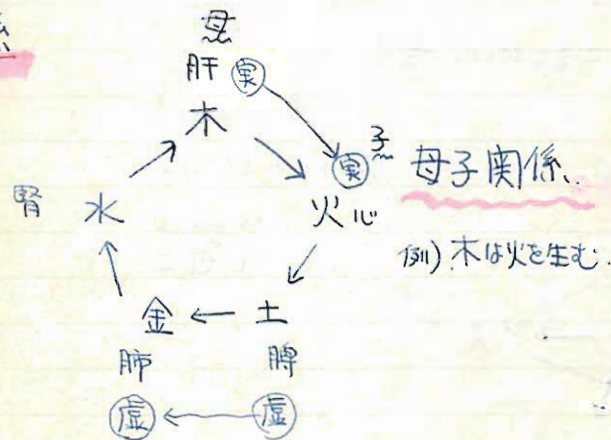 係
母
肝 実
木
子
実
母子関係
腎 水
火 心
例) 木は火を生む.
金 土
肺 脾
虚 虚